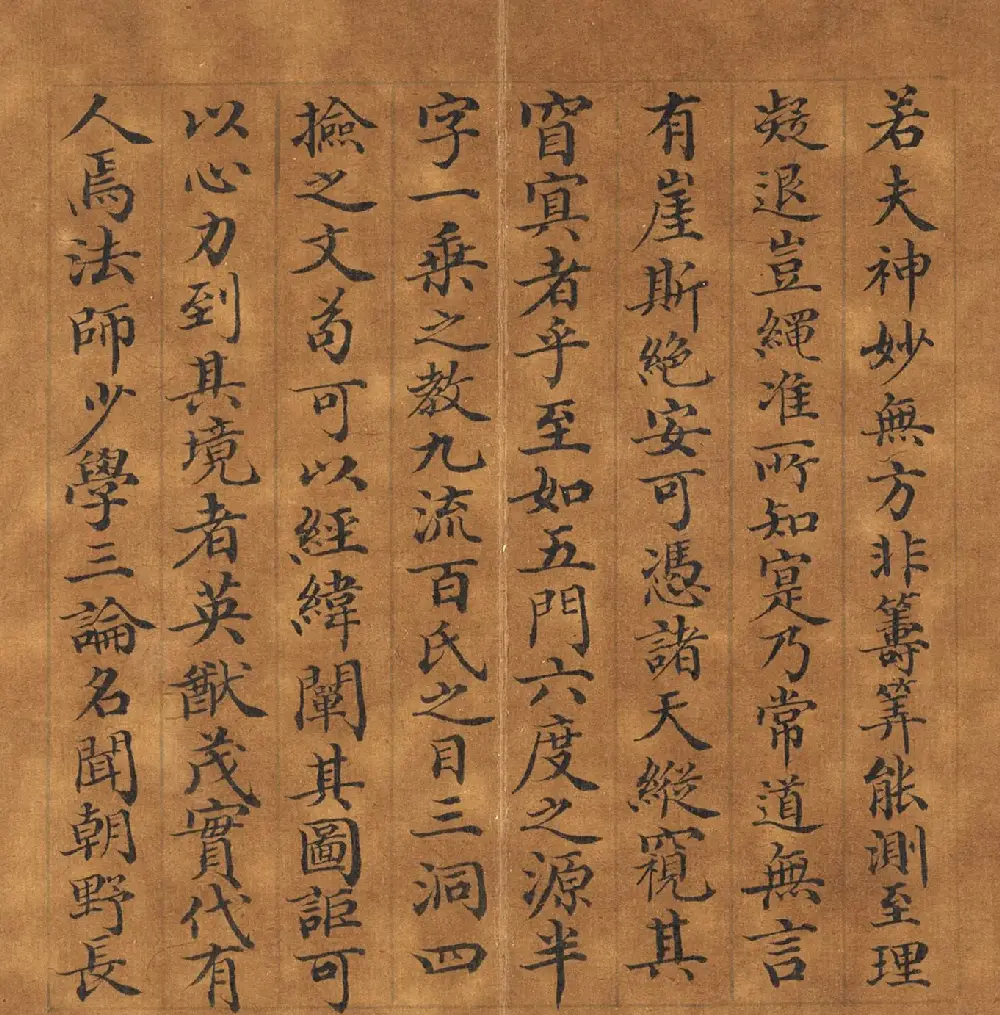 若夫神妙無方非籌筭能測至理
凝退豈繩准所知寔乃常道無言
有崖斯絶安可憑諸天縱窺其
窅寘者乎至如五門六度之源半
字一乗之教九流百氏之目三洞四
撿之文苟可以經緯闡其圖詎可
以心力到其境者英猷茂實代有
人焉法師少學三論名聞朝野長